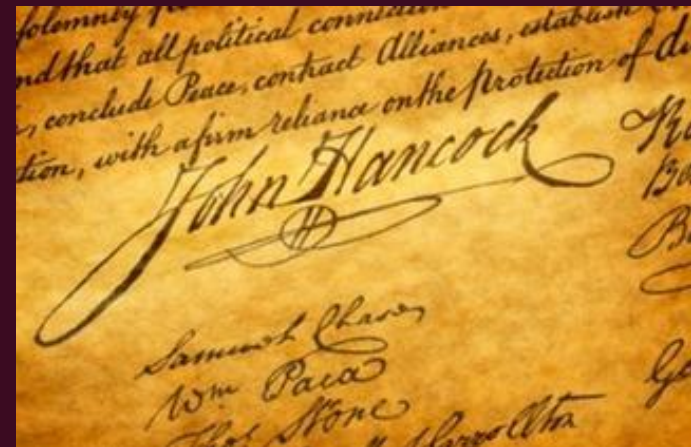 solemnly
nd that all political connection
conclude Peace, contract Alliances, establish
tion, with a firm reliance on the Protection of di
John Hancock
Samuel Chase
Wm Paca
Thos Stone